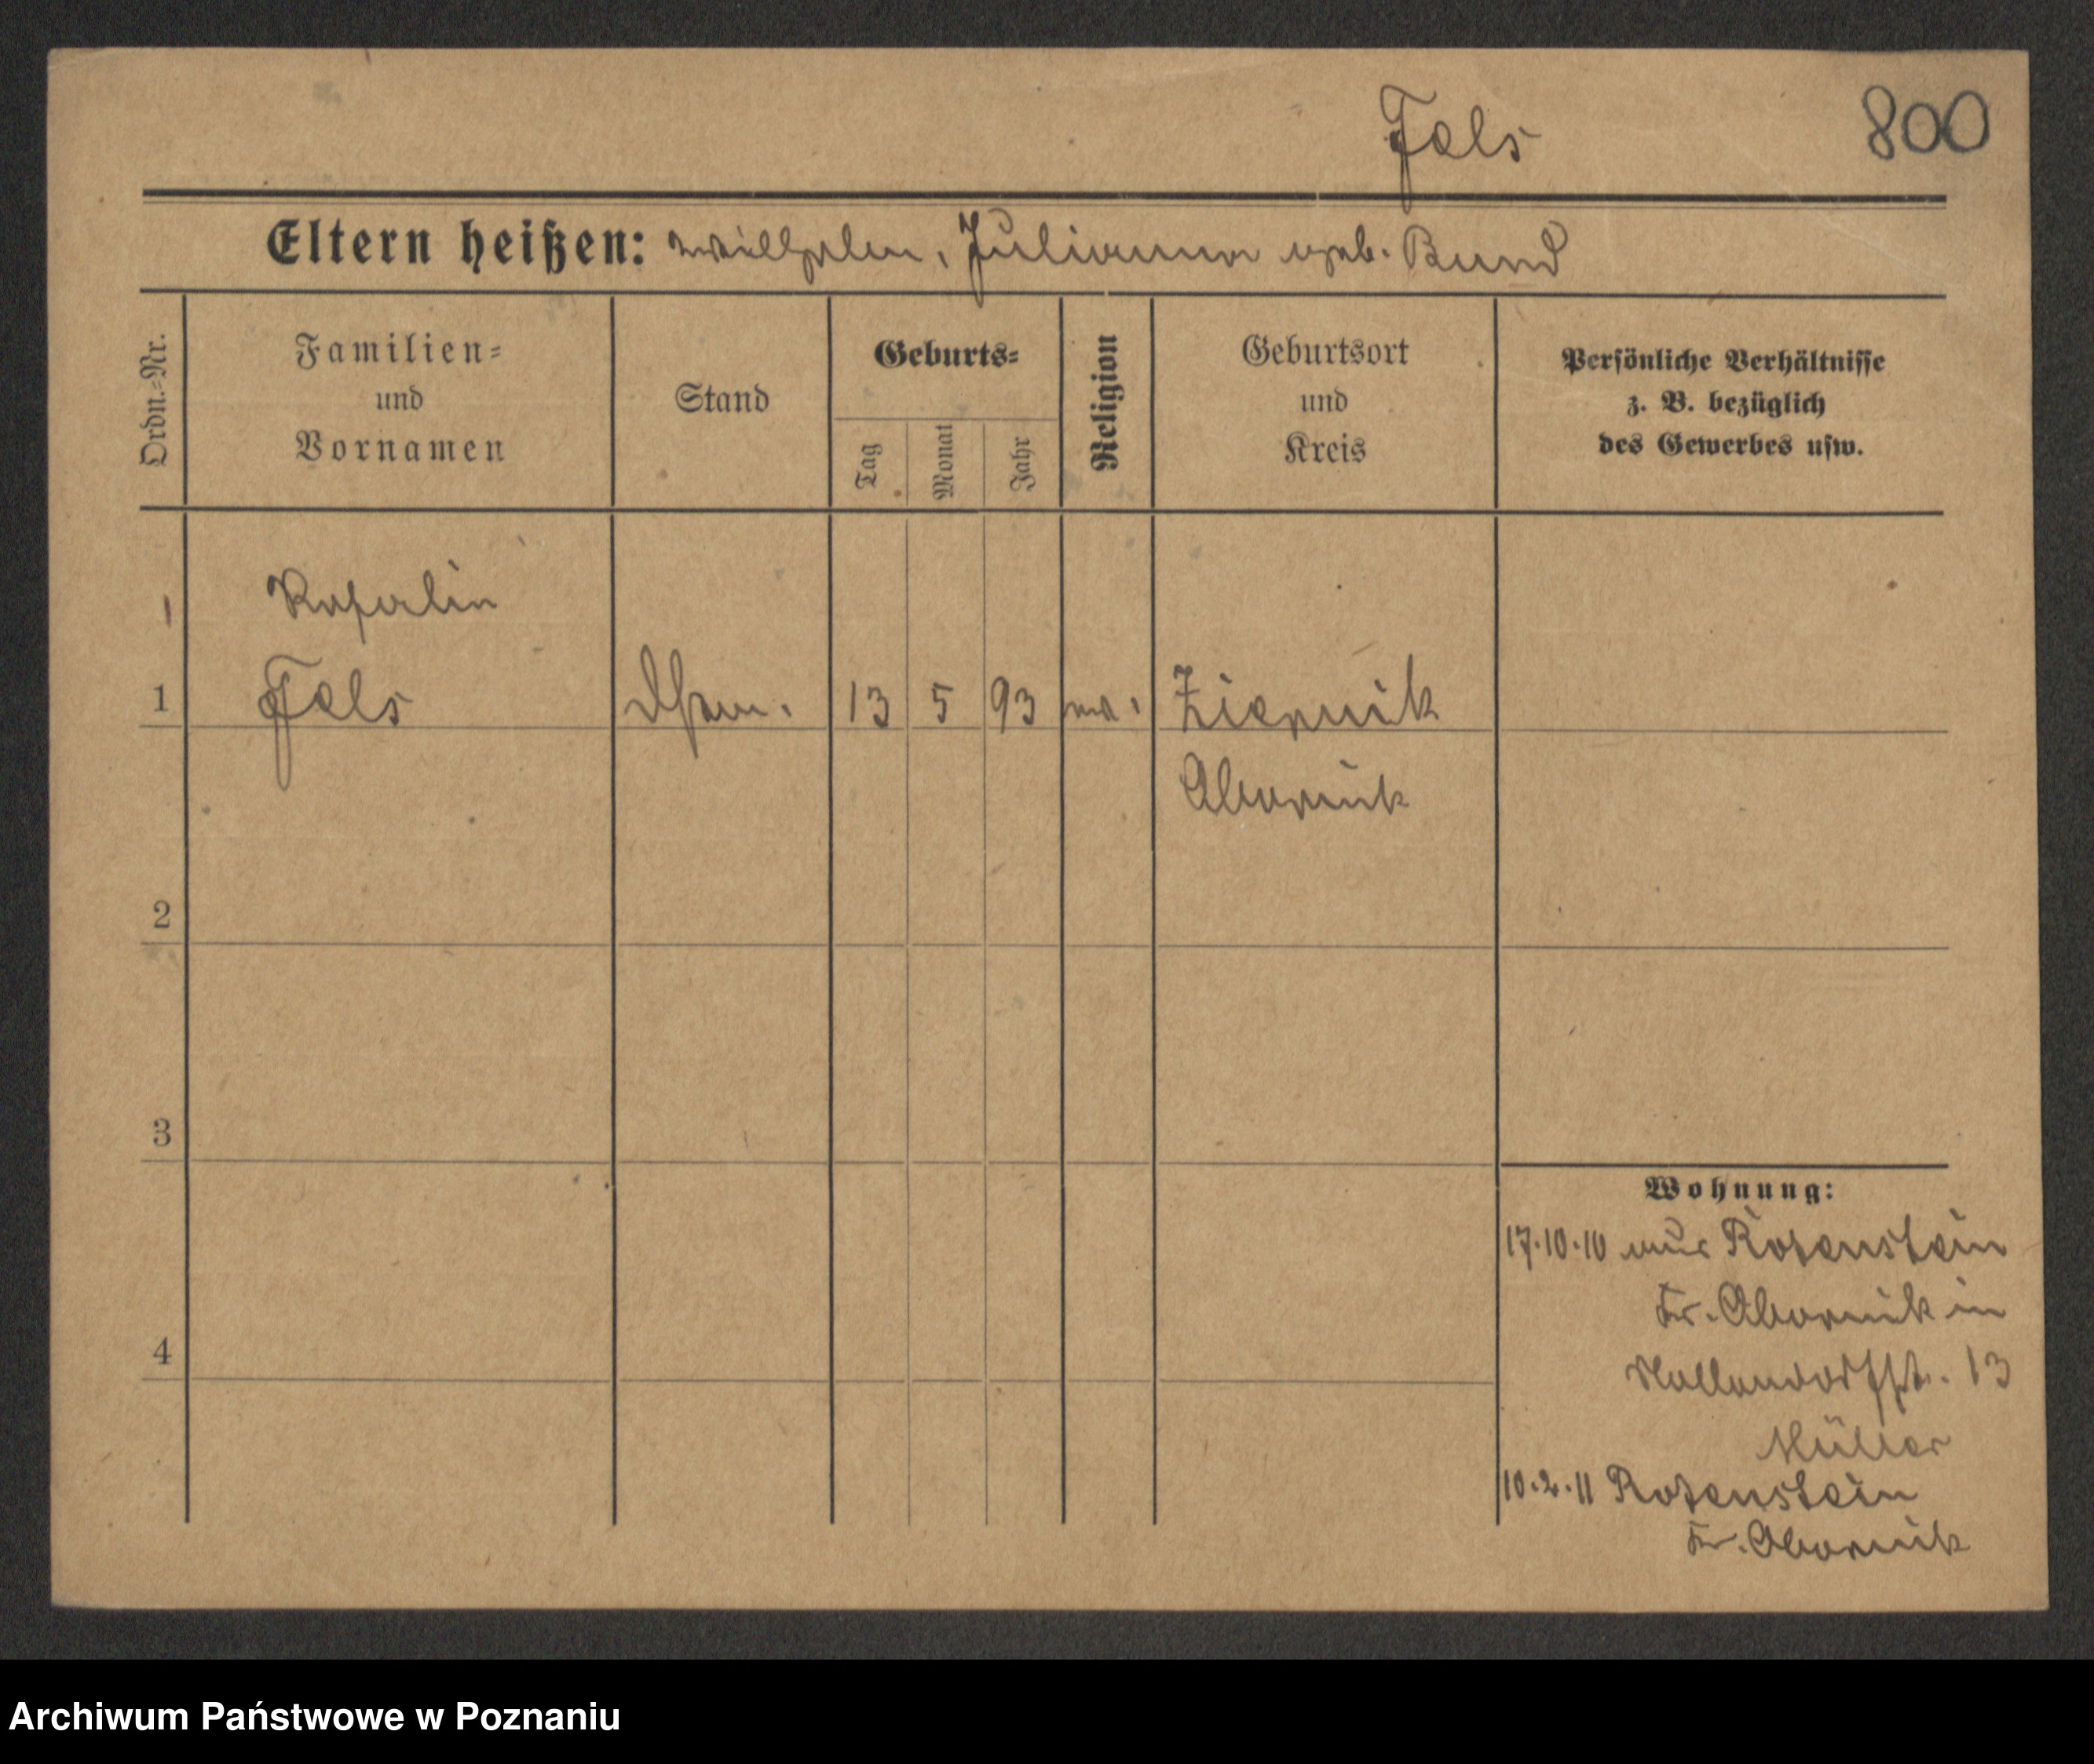 Fels
800
Eltern heißen: Wilhelm, Julianna geb. Bund
Ordn.-Nr.
Familien-
und
Vornamen
Stand
Geburts-
Tag
Monat
Jahr
Religion
Geburtsort
und
Kreis
Persönliche Verhältnisse
z. B. bezüglich
des Gewerbes usw.
1
1 Fels 13 5 93
Obornik
2
3
4
Wohnung:
17.10.10 aus Rosenstein
Kr. Obornik in
Hollendorffstr. 13
Müller
10.2.11 Rosenstein
Kr. Obornik
Archiwum Państwowe w Poznaniu